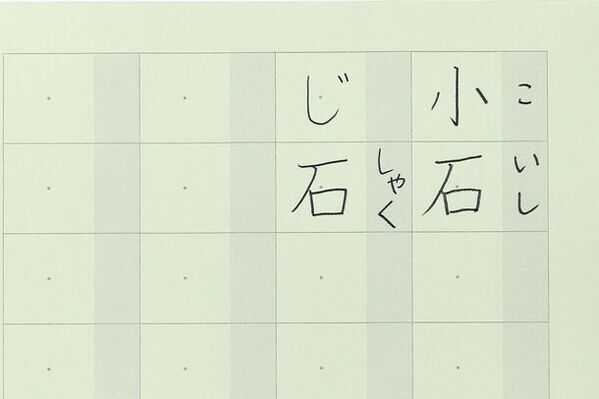 小石
こいし
じ石
しゃく